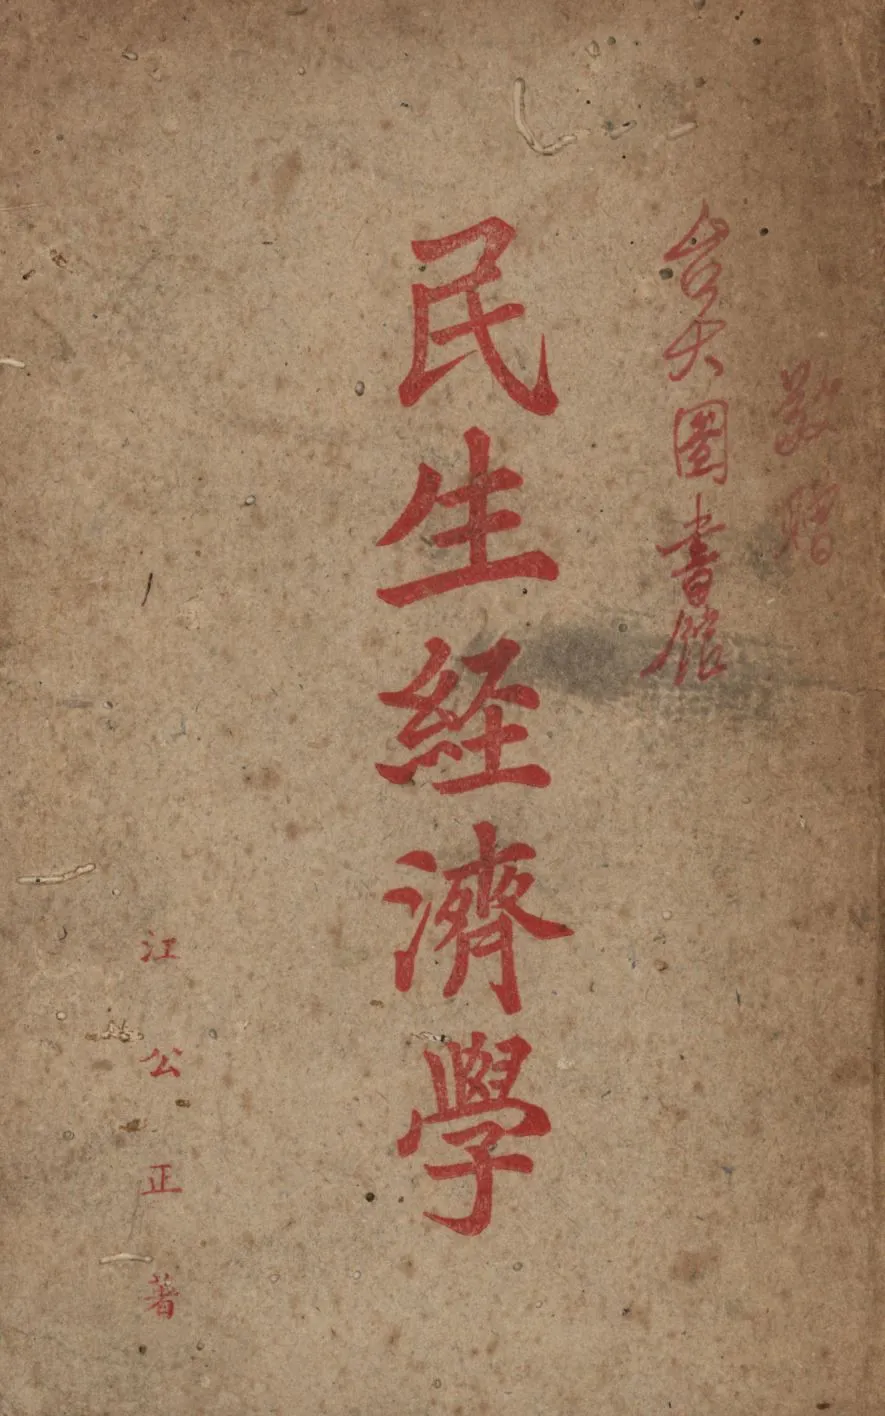 敬贈
台大圖書館
民生經濟學
江公正著